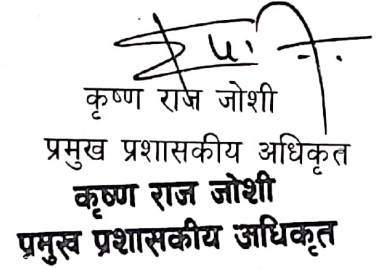 कृष्ण राज जोशी
प्रमुख प्रशासकीय अधिकृत
कृष्ण राज जोशी
प्रमुख प्रशासकीय अधिकृत